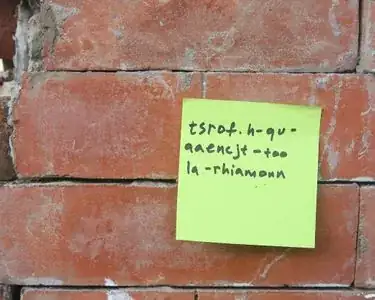 tsrof.h-qu-
qaencjt-too
la-rhiamonn